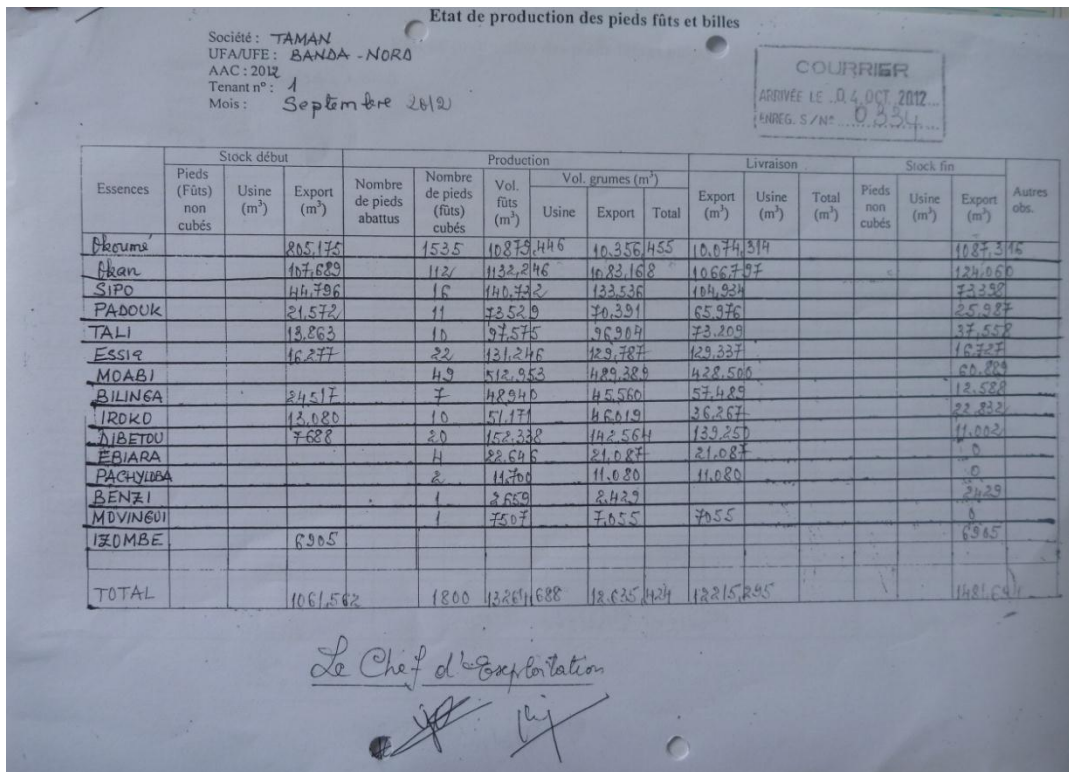 Etat de production des pieds fûts et billes
Société : TAMAN
UFA/UFE : BANDA - NORD
AAC : 2012
Tenant n° : 1
Mois : Septembre 2012
COURRIER
ARRIVÉE LE 04 OCT. 2012
ENREG. S/N° 0334
Essences Stock début Production Livraison Stock fin Autres obs.
Pieds (Fûts) non cubés Usine (m³) Export (m³) Nombre de pieds abattus Nombre de pieds (fûts) cubés Vol. fûts (m³) Vol. grumes (m³) Usine Export Total Export (m³) Usine (m³) Total (m³) Pieds non cubés Usine (m³) Export (m³)
Okoumé 805,175 1535 10879,446 10.356,455 10.074,314 1087,316
Okan 107,689 112 1132,246 1083,168 1066,797 124,060
SIPO 44,796 16 140,732 133,536 104,934 73,398
PADOUK 21,572 11 73529 70,391 65,976 25,987
TALI 13,863 10 97,575 96904 73.209 37,558
ESSIA 16,277 22 131,246 129,787 129,337 16,727
MOABI 49 512,953 489,389 428,500 60,889
BILINGA 24517 7 48940 45,560 57,489 12,588
IROKO 13,080 10 51,171 46,019 36,267 22,832
DIBETOU 7688 20 152,338 142,564 139,250 11,002
EBIARA 4 22.646 21,087 21,087 0
PACHYLOBA 2 11,700 11.080 11.080 0
BENZI 1 2659 2,429 2429
MOVINGUI 1 7507 7,055 7055 0
IZOMBE 6905 6905
TOTAL 1061,562 1800 13264,688 12.635,424 12215,295 1481,691
Le Chef d'Exploitation